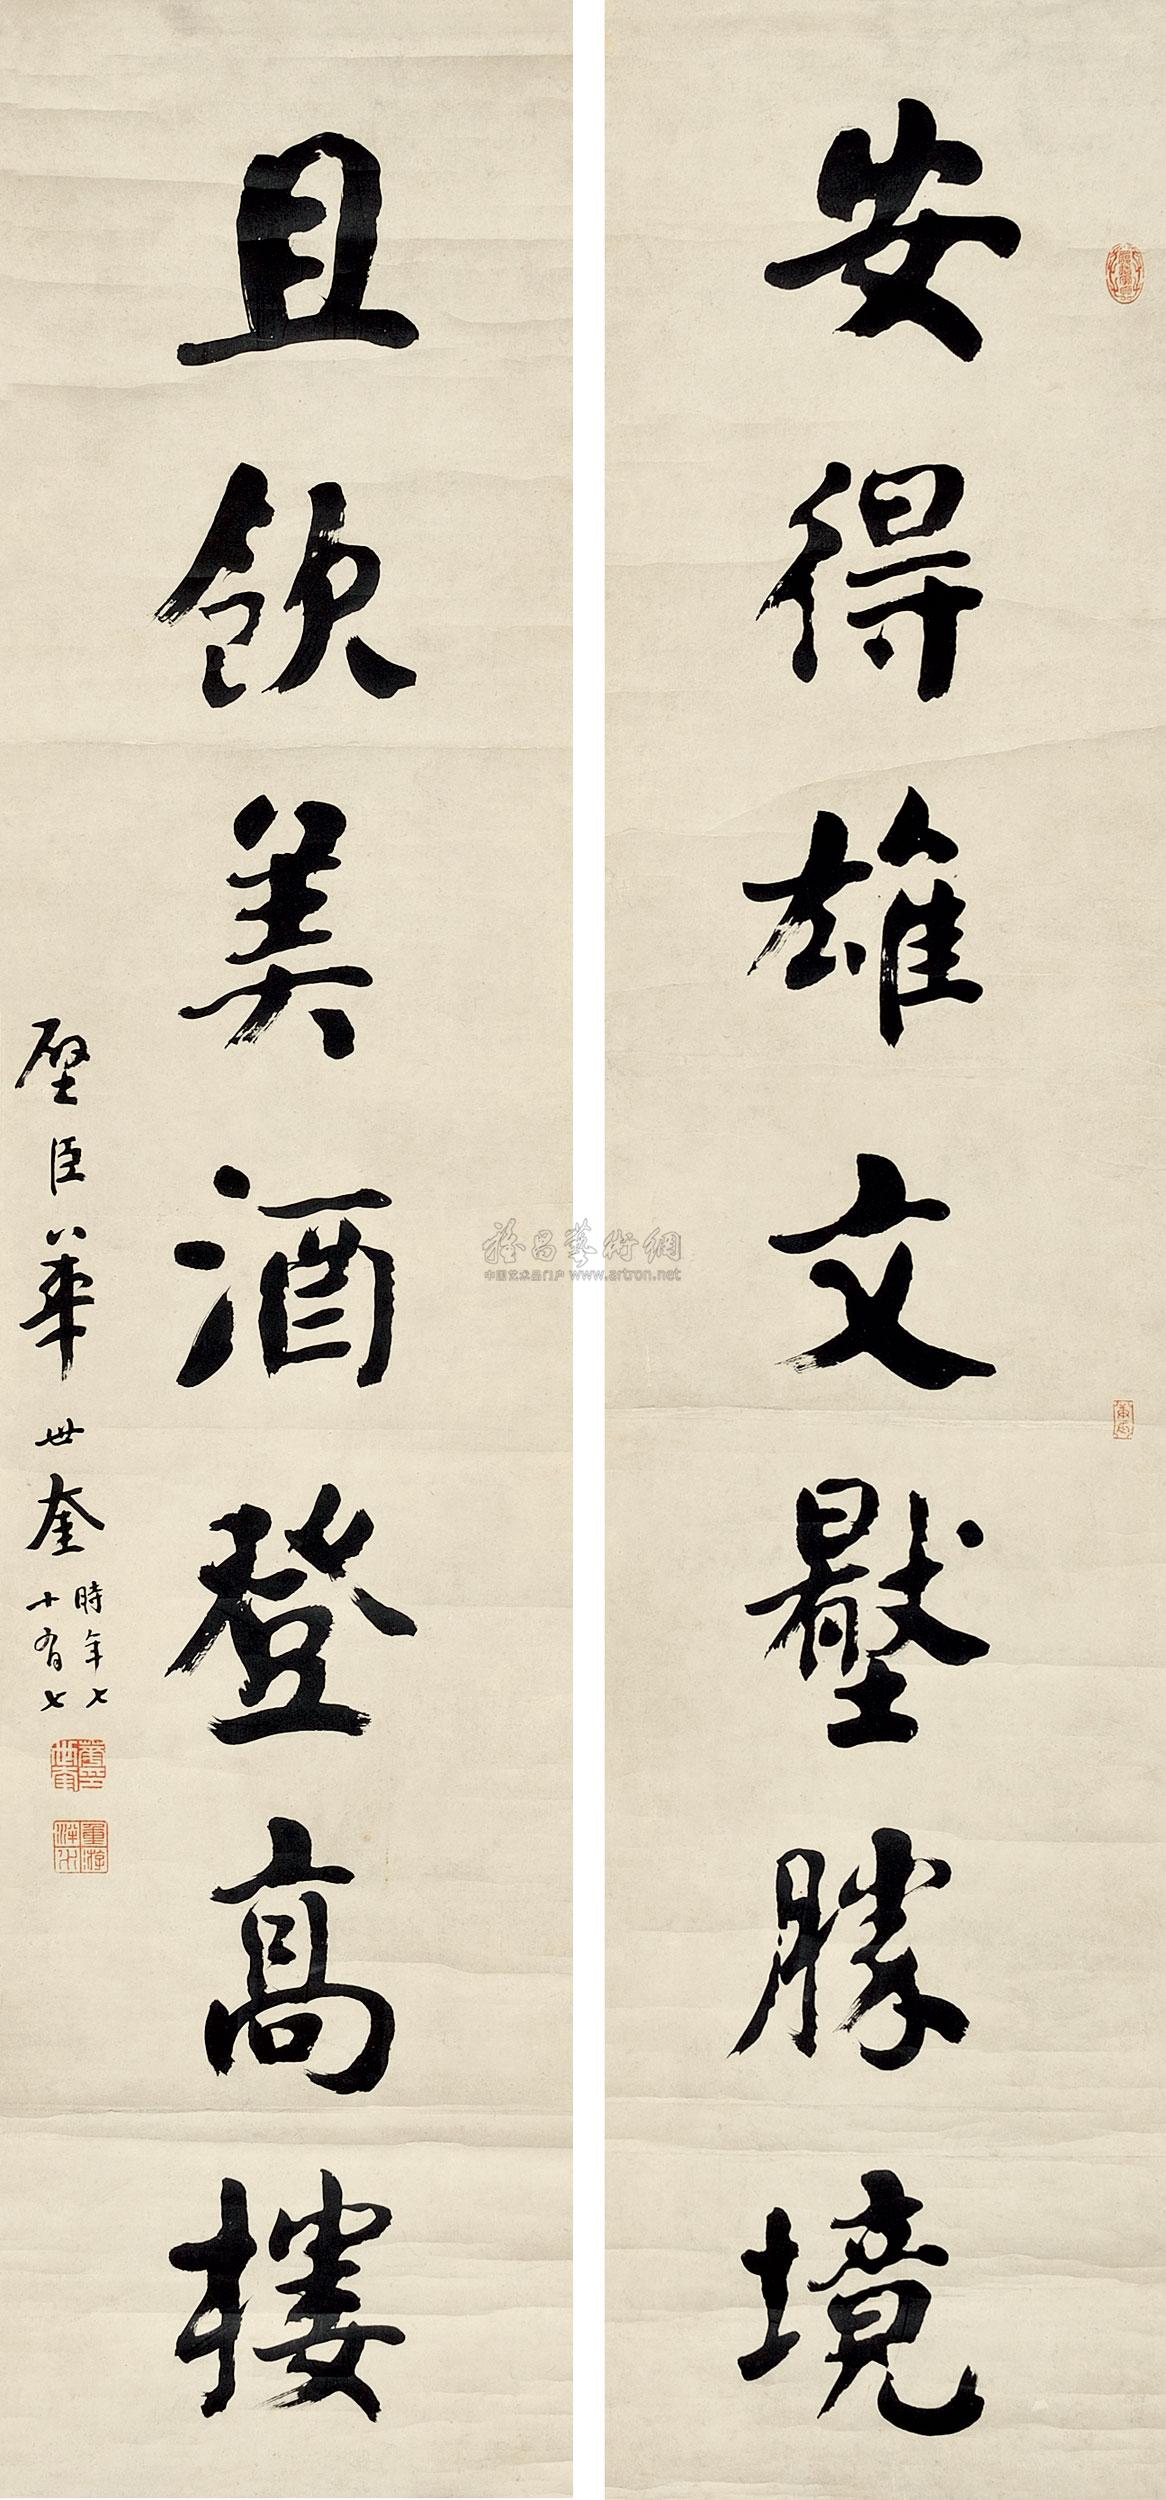 安得雄文壓勝境
且飲美酒登高樓
壁臣華世奎
時年七
十有七
雅昌藝術網
中国艺术品门户 www.artron.net